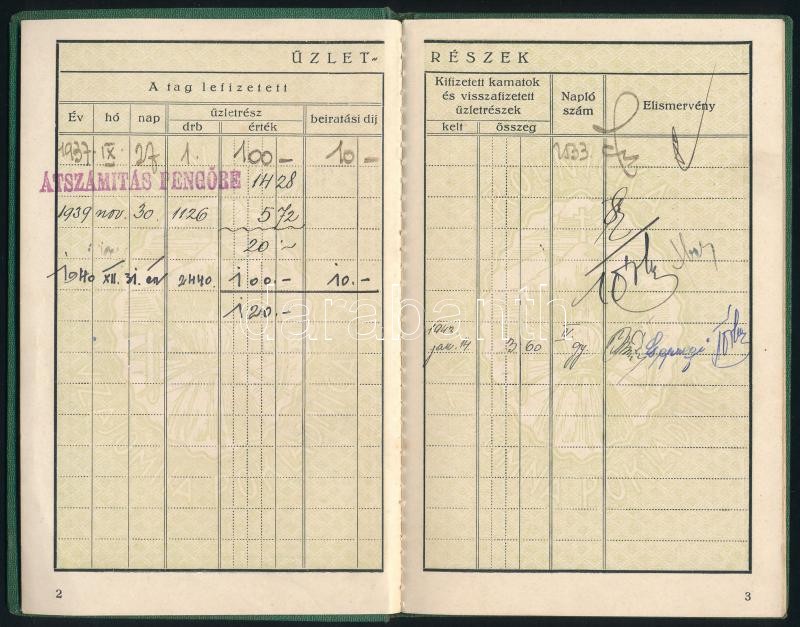 ÜZLET-
A tag lefizetett
Év hó nap üzletrész beiratási díj
drb érték
1937 IX 27 1. 100.- 10.-
ÁTSZÁMITÁS PENGŐRE 14 28
1939 nov. 30. 1126 5 72
20.-
1940 XII. 31. 2440. 100.- 10.-
120.-
2
RÉSZEK
Kifizetett kamatok és visszafizetett üzletrészek Napló szám Elismervény
kelt összeg
2533
1942
jan. 14. 3 60
3
darabanth